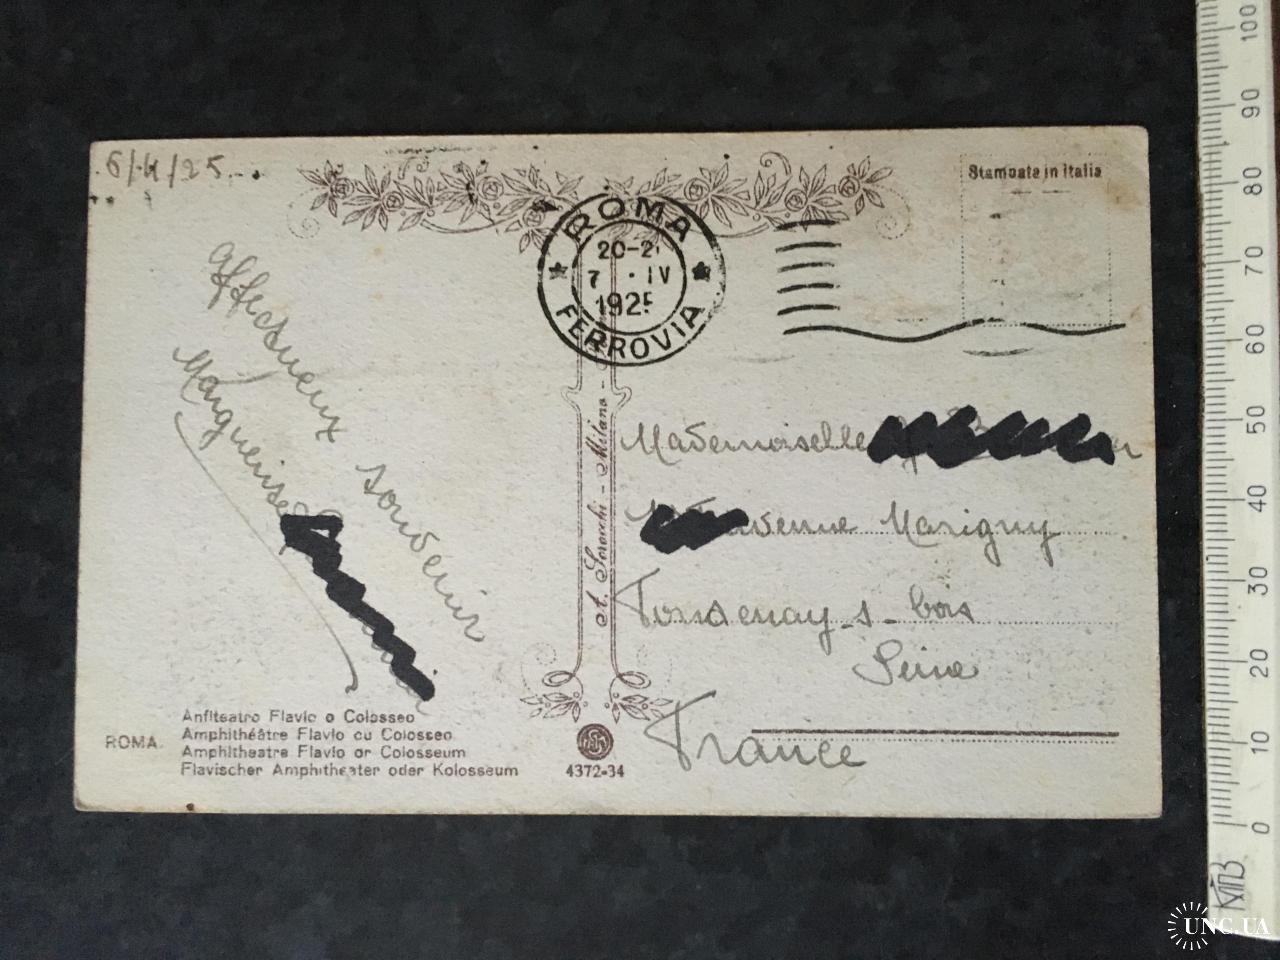 6/4/25
Stampata in Italia
ROMA
20-2
7 · IV
1925
FERROVIA
Affectueux souvenir
Marguerite
A. Scrocchi - Milano -
Mademoiselle
Marigny
Fontenay-s-bois
Seine
France
ROMA.
Anfiteatro Flavio o Colosseo
Amphithéâtre Flavio ou Colosseo
Amphitheatre Flavio or Colosseum
Flavischer Amphitheater oder Kolosseum
4372-34
100
90
80
70
60
50
40
30
20
10
0
UNC.UA